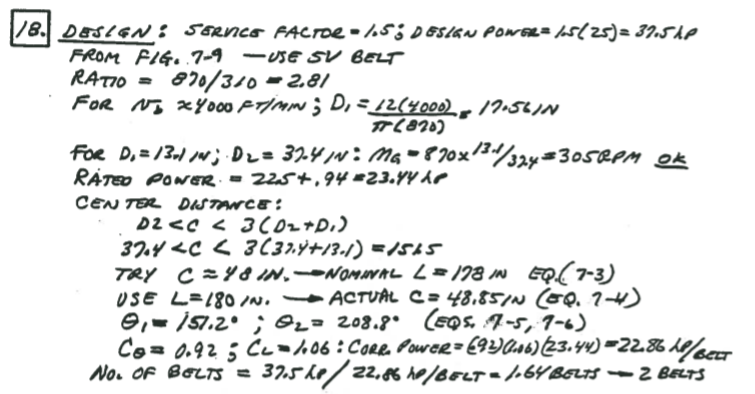 18. DESIGN: SERVICE FACTOR = 1.5; DESIGN POWER = 1.5(25) = 37.5 hp
FROM FIG. 7-9 — USE 5V BELT
RATIO = 870/310 = 2.81
FOR Nb ≈ 4000 FT/MIN; D1 = 12(4000)/π(870) = 17.56 IN
FOR D1 = 13.1 IN; D2 = 37.4 IN: MG = 870 x 13.1/37.4 = 305 RPM OK
RATED POWER = 22.5 + .94 = 23.44 hp
CENTER DISTANCE:
D2 < C < 3(D2+D1)
37.4 < C < 3(37.4+13.1) = 151.5
TRY C ≈ 48 IN. → NOMINAL L = 178 IN EQ.(7-3)
USE L = 180 IN. → ACTUAL C = 48.85 IN (EQ. 7-4)
θ1 = 151.2° ; θ2 = 208.8° (EQS. 7-5, 7-6)
Cθ = 0.92 ; CL = 1.06 : CORR. POWER = (.92)(1.06)(23.44) = 22.86 hp/BELT
NO. OF BELTS = 37.5 hp/22.86 hp/BELT = 1.64 BELTS → 2 BELTS